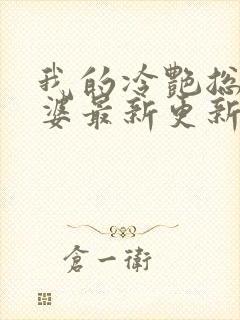 我的冷艷总
婆最新更新
倉一衛